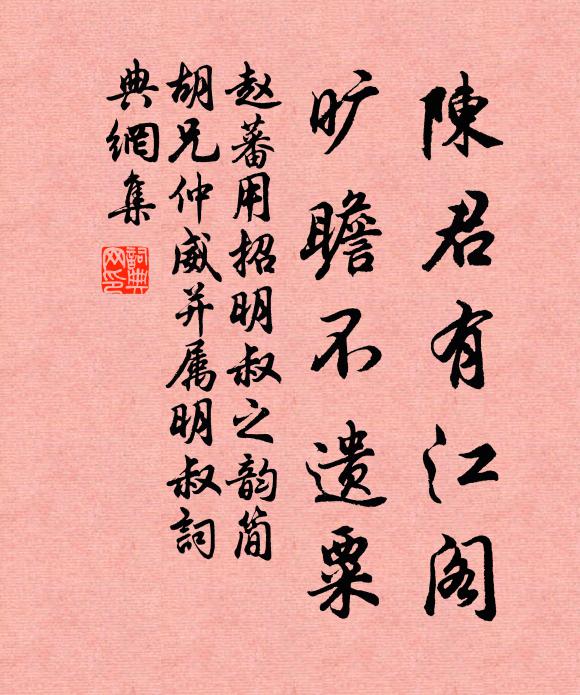 陳君有江阁
旷瞻不遗粟
赵蕃用招明叔之韵简
胡兄仲威并属明叔詞
典網集
詞典網印